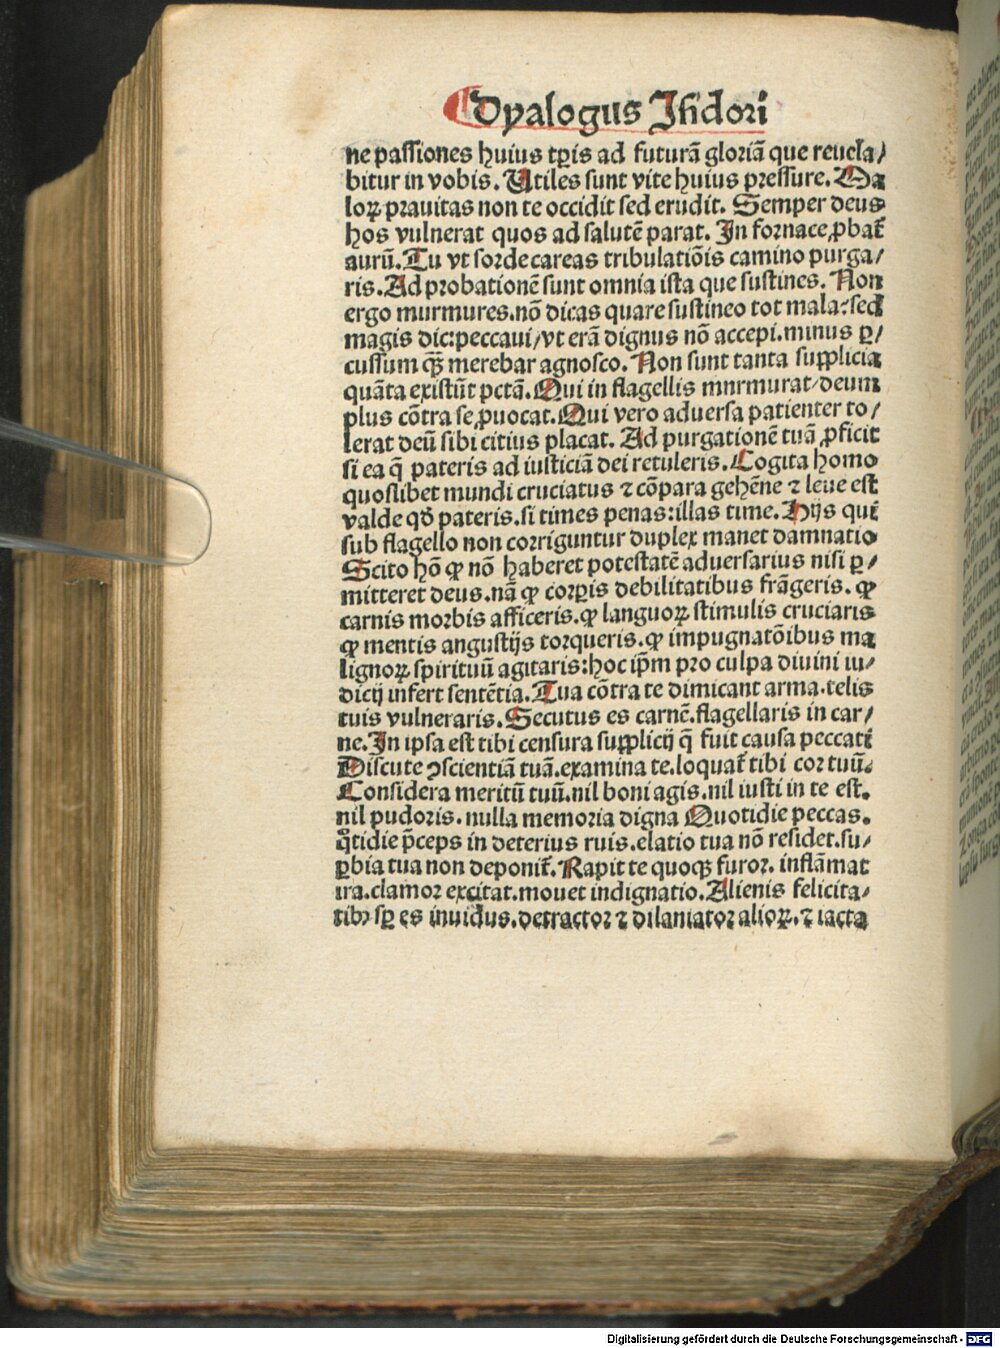 Dyalogus Jſidori
ne paſſiones huius tꝑis ad futurã gloriã que reuela/
bitur in vobis. Vtiles ſunt vite huius preſſure. Ma
loꝝ prauitas non te occidit ſed erudit. Semper deus
hos vulnerat quos ad ſalutẽ parat. In fornace ꝓbat᷑
aurũ. Tu vt ſorde careas tribulatiõis camino purga/
ris. Ad probationẽ ſunt omnia iſta que ſuſtines. Non
ergo murmures. nõ dicas quare ſuſtineo tot mala: ſed
magis dic: peccaui/ vt erã dignus nõ accepi. minus ꝑ/
cuſſum qꝫ merebar agnoſco. Non ſunt tanta ſupplicia
quãta exiſtũt pctã. Qui in flagellis mnrmurat/ deum
plus cõtra ſe ꝓuocat. Qui vero aduerſa patienter to/
lerat deũ ſibi citius placat. Ad purgationẽ tuã ꝓficit
ſi ea q̃ pateris ad iuſticiã dei retuleris. Cogita homo
quoſlibet mundi cruciatus ⁊ cõpara gehẽne ⁊ leue eſt
valde qð pateris. ſi times penas: illas time. Hijs quĩ
ſub flagello non corriguntur duplex manet damnatio
Scito hõ ꝙ nõ haberet poteſtatẽ aduerſarius niſi ꝑ/
mitteret deus. nã ꝙ corꝑis debilitatibus frãgeris. ꝙ
carnis morbis afficeris. ꝙ languoꝝ ſtimulis cruciaris
ꝙ mentis anguſtijs torqueris. ꝙ impugnatõibus ma
lignoꝝ ſpirituũ agitaris: hoc ip̃m pro culpa diuini iu/
dicij infert ſentẽtia. Tua cõtra te dimicant arma. telis
tuis vulneraris. Secutus es carnẽ. flagellaris in car/
ne. In ipſa eſt tibi cenſura ſupplicij q̃ fuit cauſa peccati
Diſcute ꝯſcientiã tuã. examina te. loquat᷑ tibi cor tuũ.
Conſidera meritũ tuũ. nil boni agis. nil iuſti in te eſt.
nil pudoris. nulla memoria digna Quotidie peccas.
q̊tidie p̃ceps in deterius ruis. elatio tua nõ reſidet. ſu/
ꝑbia tua non deponit᷑. Rapit te quoqꝫ furor. inflãmat
ira. clamor excitat. mouet indignatio. Alienis felicita/
tibꝫ ſꝑ es inuidus. detractor ⁊ dilaniator alioꝝ. ⁊ iacta
Digitalisierung gefördert durch die Deutsche Forschungsgemeinschaft - DFG